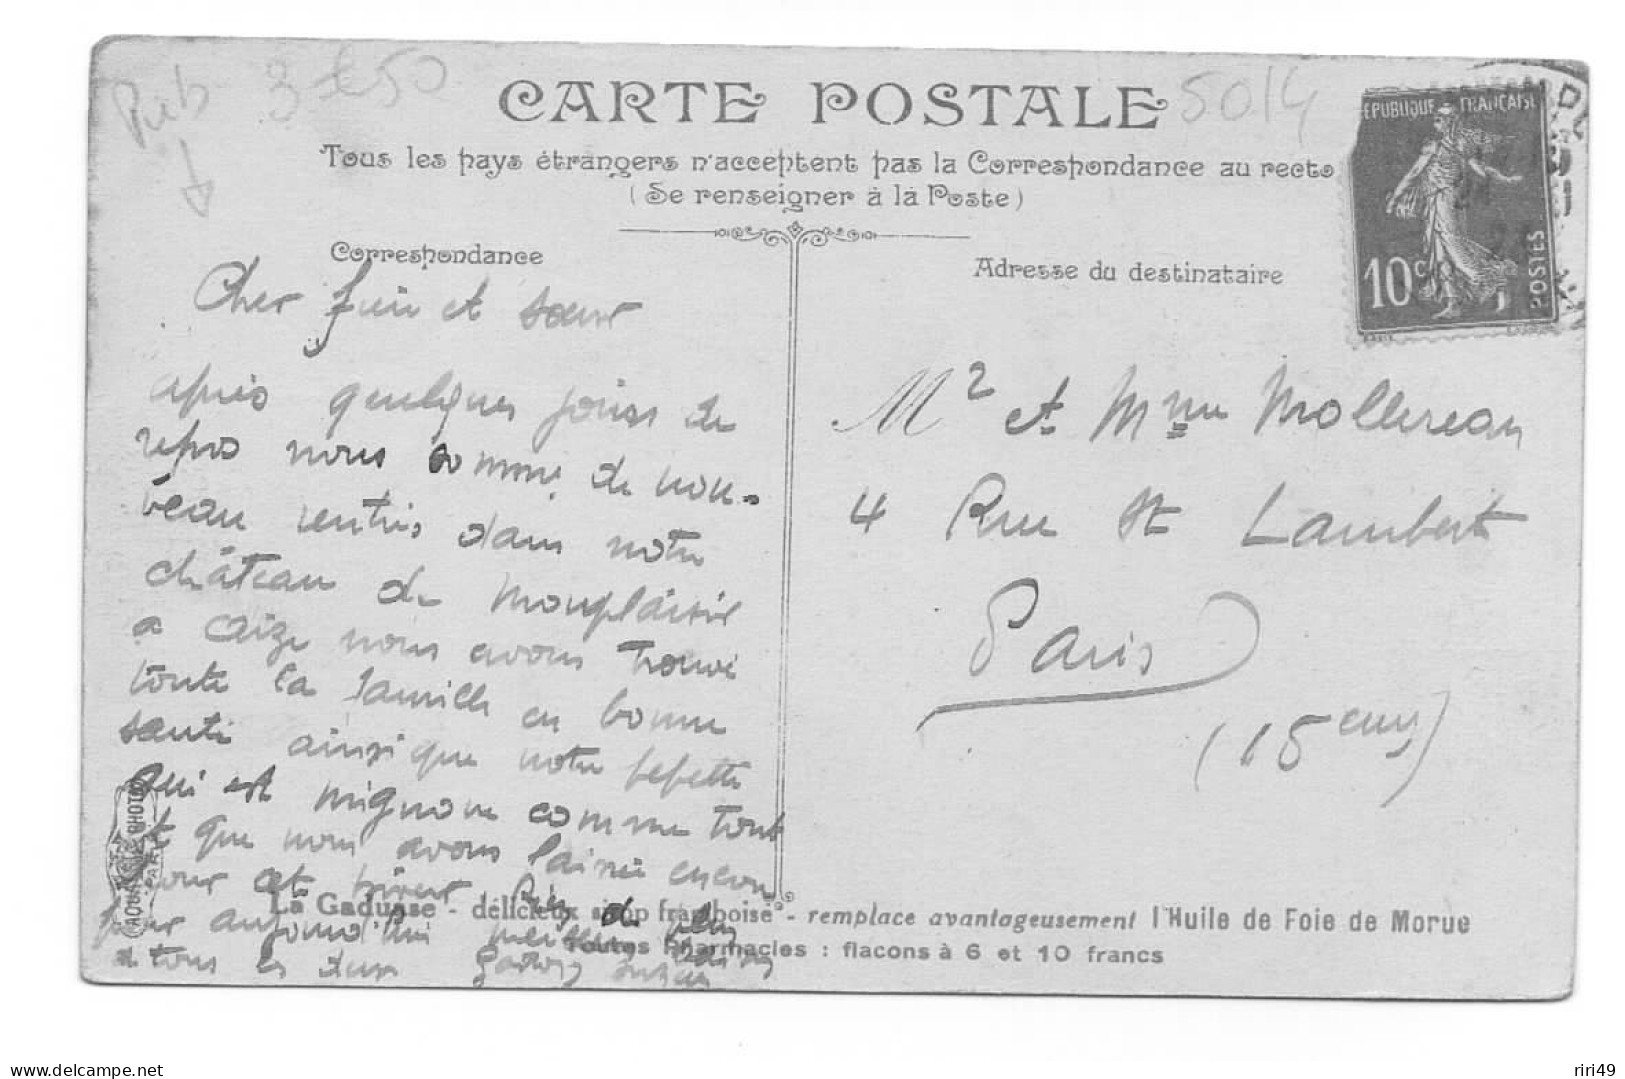 Pub 3€50
CARTE POSTALE 5014
Tous les pays étrangers n'acceptent pas la Correspondance au recto
(Se renseigner à la Poste)
Correspondance
Adresse du destinataire
REPUBLIQUE FRANCAISE
10c
POSTES
Cher frère et sœur
après quelques jours de
repos nous somme de nou-
veau rentrés dans notre
château de Monplaisir
a Caize nous avons trouvé
toute la famille en bonne
santé ainsi que notre bebette
qui est mignone comme tout
et que nous avons laissé encore
pour cet hiver Rien de plus
pour aujourd'hui meilleurs baisers
a tous les deux
Mr et Mme Mollereau
4 Rue St Lambert
Paris
(15 eme)
La Gaduase - délicieux sirop framboisé - remplace avantageusement l'Huile de Foie de Morue
Toutes Pharmacies : flacons à 6 et 10 francs
riri49